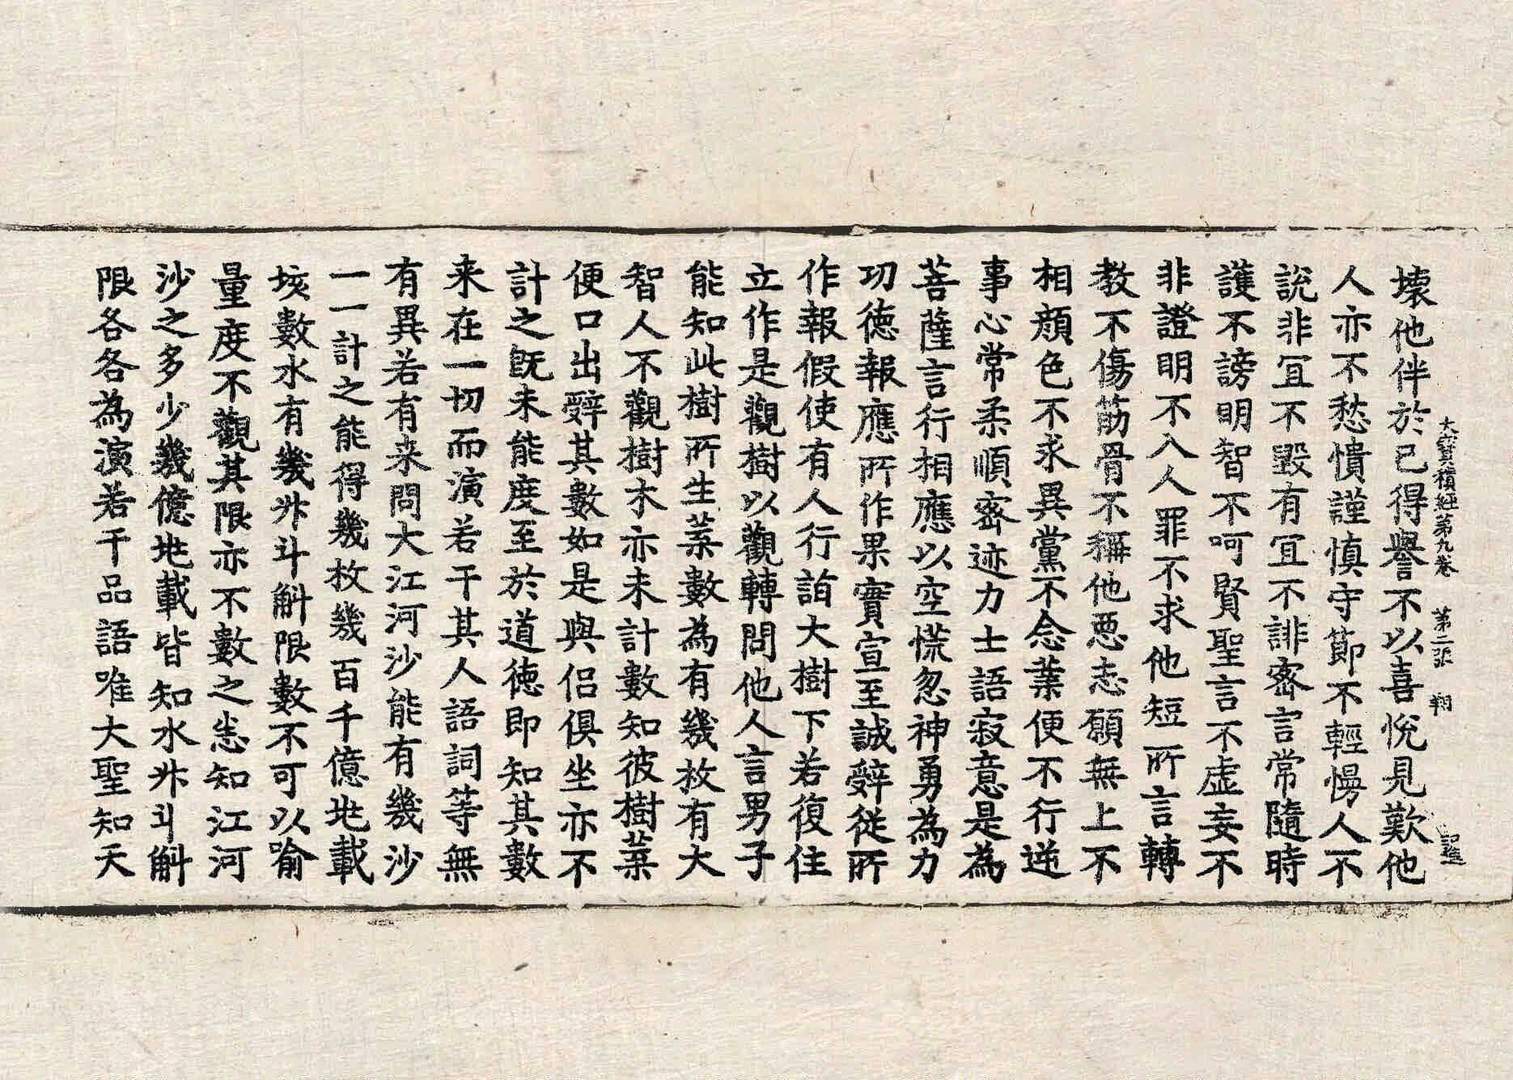 大寶積經第九卷 第二張 翔
壞他伴於已得譽不以喜悅見歎他
人亦不愁憒謹慎守節不輕慢人不
說非冝不毀有冝不誹宻言常隨時
護不謗明智不呵賢聖言不虛妄不
非證明不入人罪不求他短所言轉
教不傷筋骨不稱他惡志願無上不
相顏色不求異黨不念業便不行逆
事心常柔順宻迹力士語寂意是為
菩薩言行相應以空慌忽神勇為力
功徳報應所作果實宣至誠辭従所
作報假使有人行詣大樹下若復住
立作是觀樹以觀轉問他人言男子
能知此樹所生葉數為有幾枚有大
智人不觀樹木亦未計數知彼樹葉
便口出辭其數如是與侣俱坐亦不
計之旣未能度至於道徳即知其數
来在一切而演若干其人語詞等無
有異若有来問大江河沙能有幾沙
一一計之能得幾枚幾百千億地載
垓數水有幾升斗斛限數不可以喻
量度不觀其限亦不數之悉知江河
沙之多少幾億地載皆知水升斗斛
限各各為演若干品語唯大聖知天